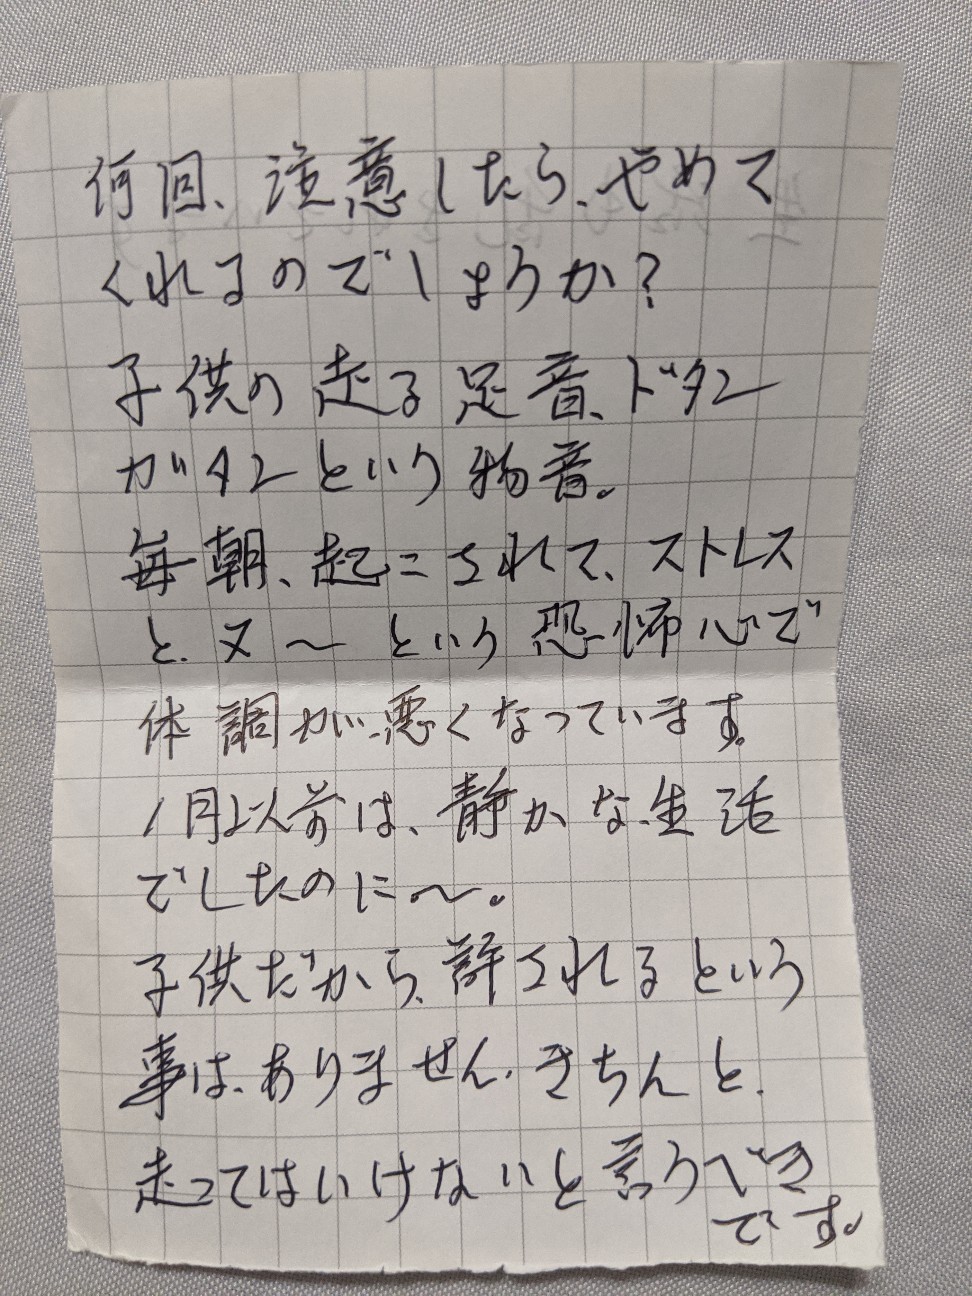 何回、注意したら、やめて
くれるのでしょうか?
子供の走る足音、ドタン
ガタンという物音。
毎朝、起こされて、ストレス
と、又〜という恐怖心で
体調が、悪くなっています。
1月以前は、静かな生活
でしたのに〜。
子供だから、許されるという
事は、ありません。きちんと、
走ってはいけないと言うべき
です。